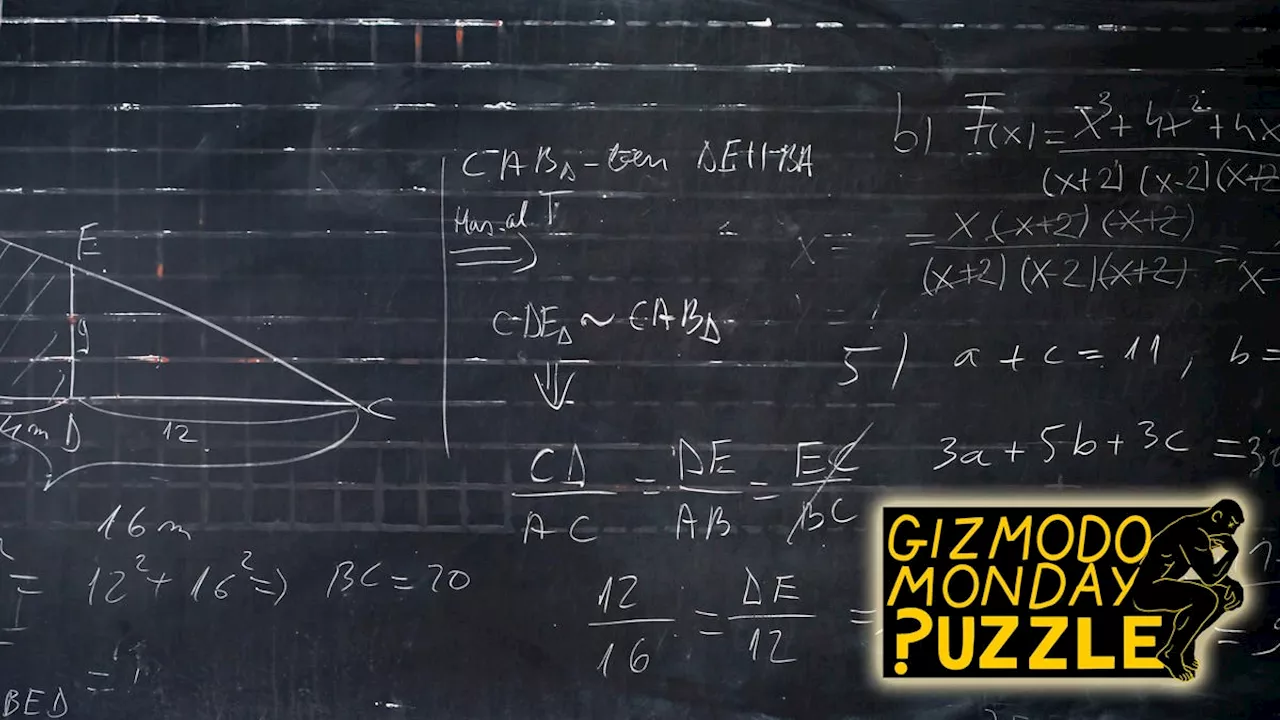 E
g
D
C
12
16 m
= 12² + 16² => BC = 20
=
BED
CAB△ - DE || BA
CDE△ ~ CAB△
CD/AC = DE/AB = EC/BC
12/16 = DE/12 =
b) F(x) = x³ + 4x² + 4x
(x+2) (x-2) (x+2
x =
= x (x+2) (x+2)
(x+2) (x-2) (x+2) =
x-
5) a + c = 11, b =
3a + 5b + 3c = 3
GIZMODO
MONDAY
?UZZLE